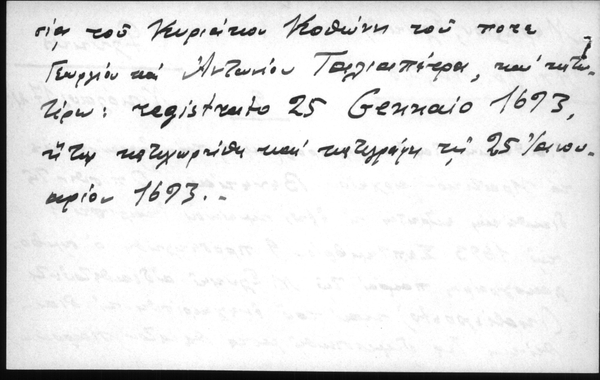 τία τοῦ Κυριάκου Κοθώνη τοῦ ποτε
Γεωργίου καὶ Ἀντωνίου Ταλιαπέτρα, καὶ κατω-
τέρω: registrato 25 Gennaio 1693,
ἤτοι κατεχωρήθη καὶ κατεγράφη τῇ 25 Ἰανου-
αρίου 1693.-